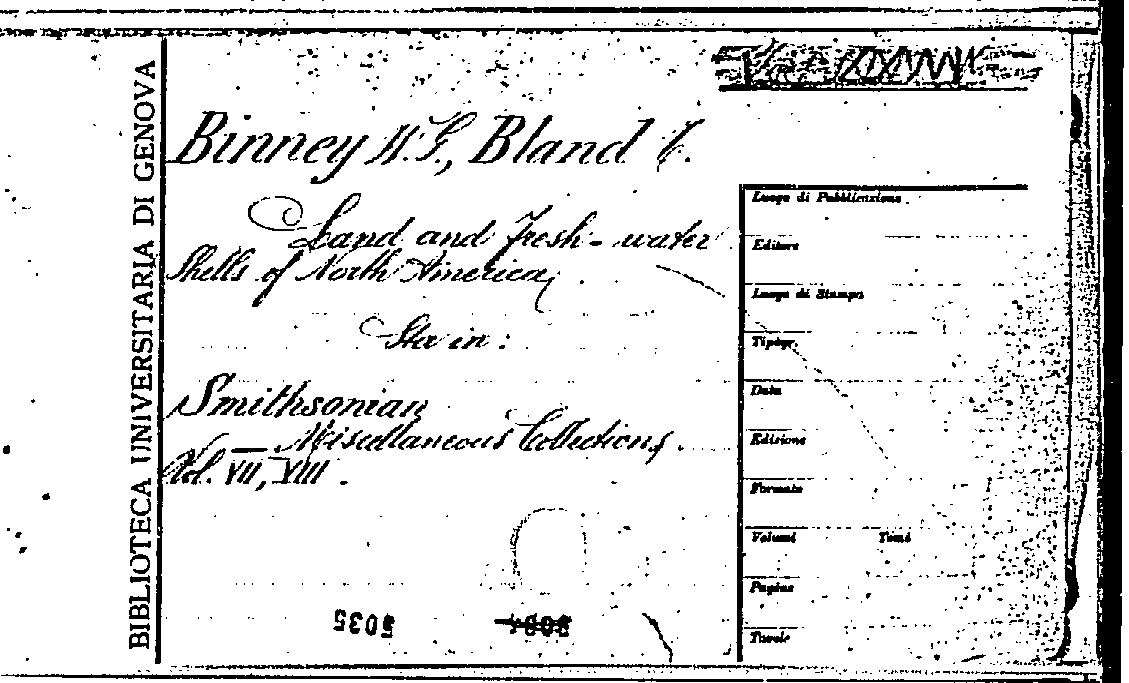 BIBLIOTECA UNIVERSITARIA DI GENOVA
Binney W.G., Bland T.
Land and Fresh-water
Shells of North America,
Sta in:
Smithsonian
Miscellaneous Collections.
Vol. VII, VIII.
5035
Luogo di Pubblicazione
Editore
Luogo di Stampa
Tipogr.
Data
Edizione
Formato
Volumi Tomi
Pagine
Tavole